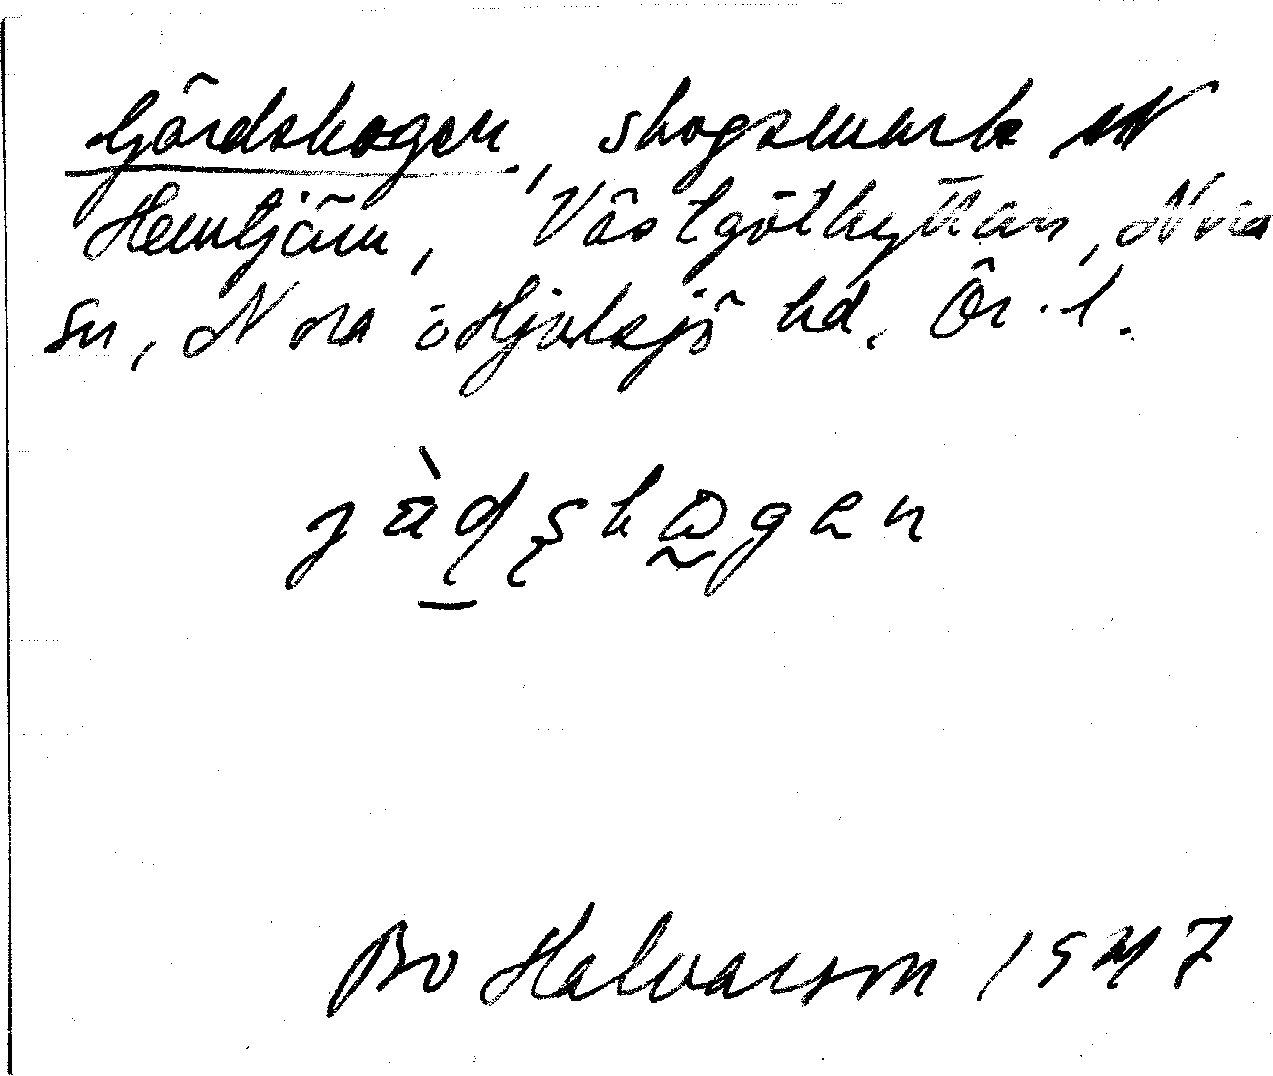 Gärdskogen, skogsmark N
Hemtjärn, Västgöthyttan, Nora
sn, Nora o Hjulsjö hd, Ör. l.
Bo Halvarson 1947